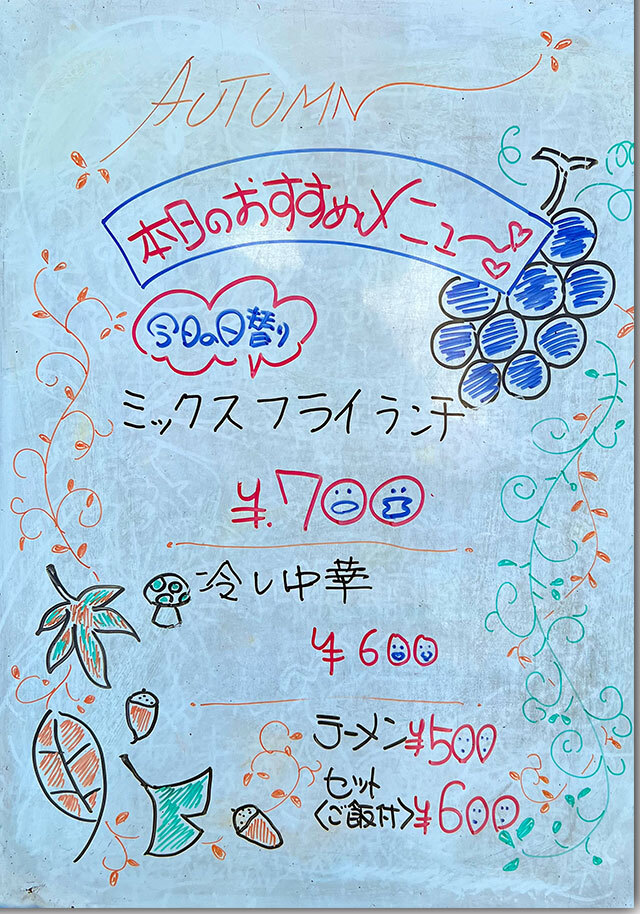 AUTUMN
本日のおすすめメニュー
今日の日替り
ミックスフライランチ
¥.700
冷し中華
¥600
ラーメン¥500
セット
〈ご飯付〉¥600